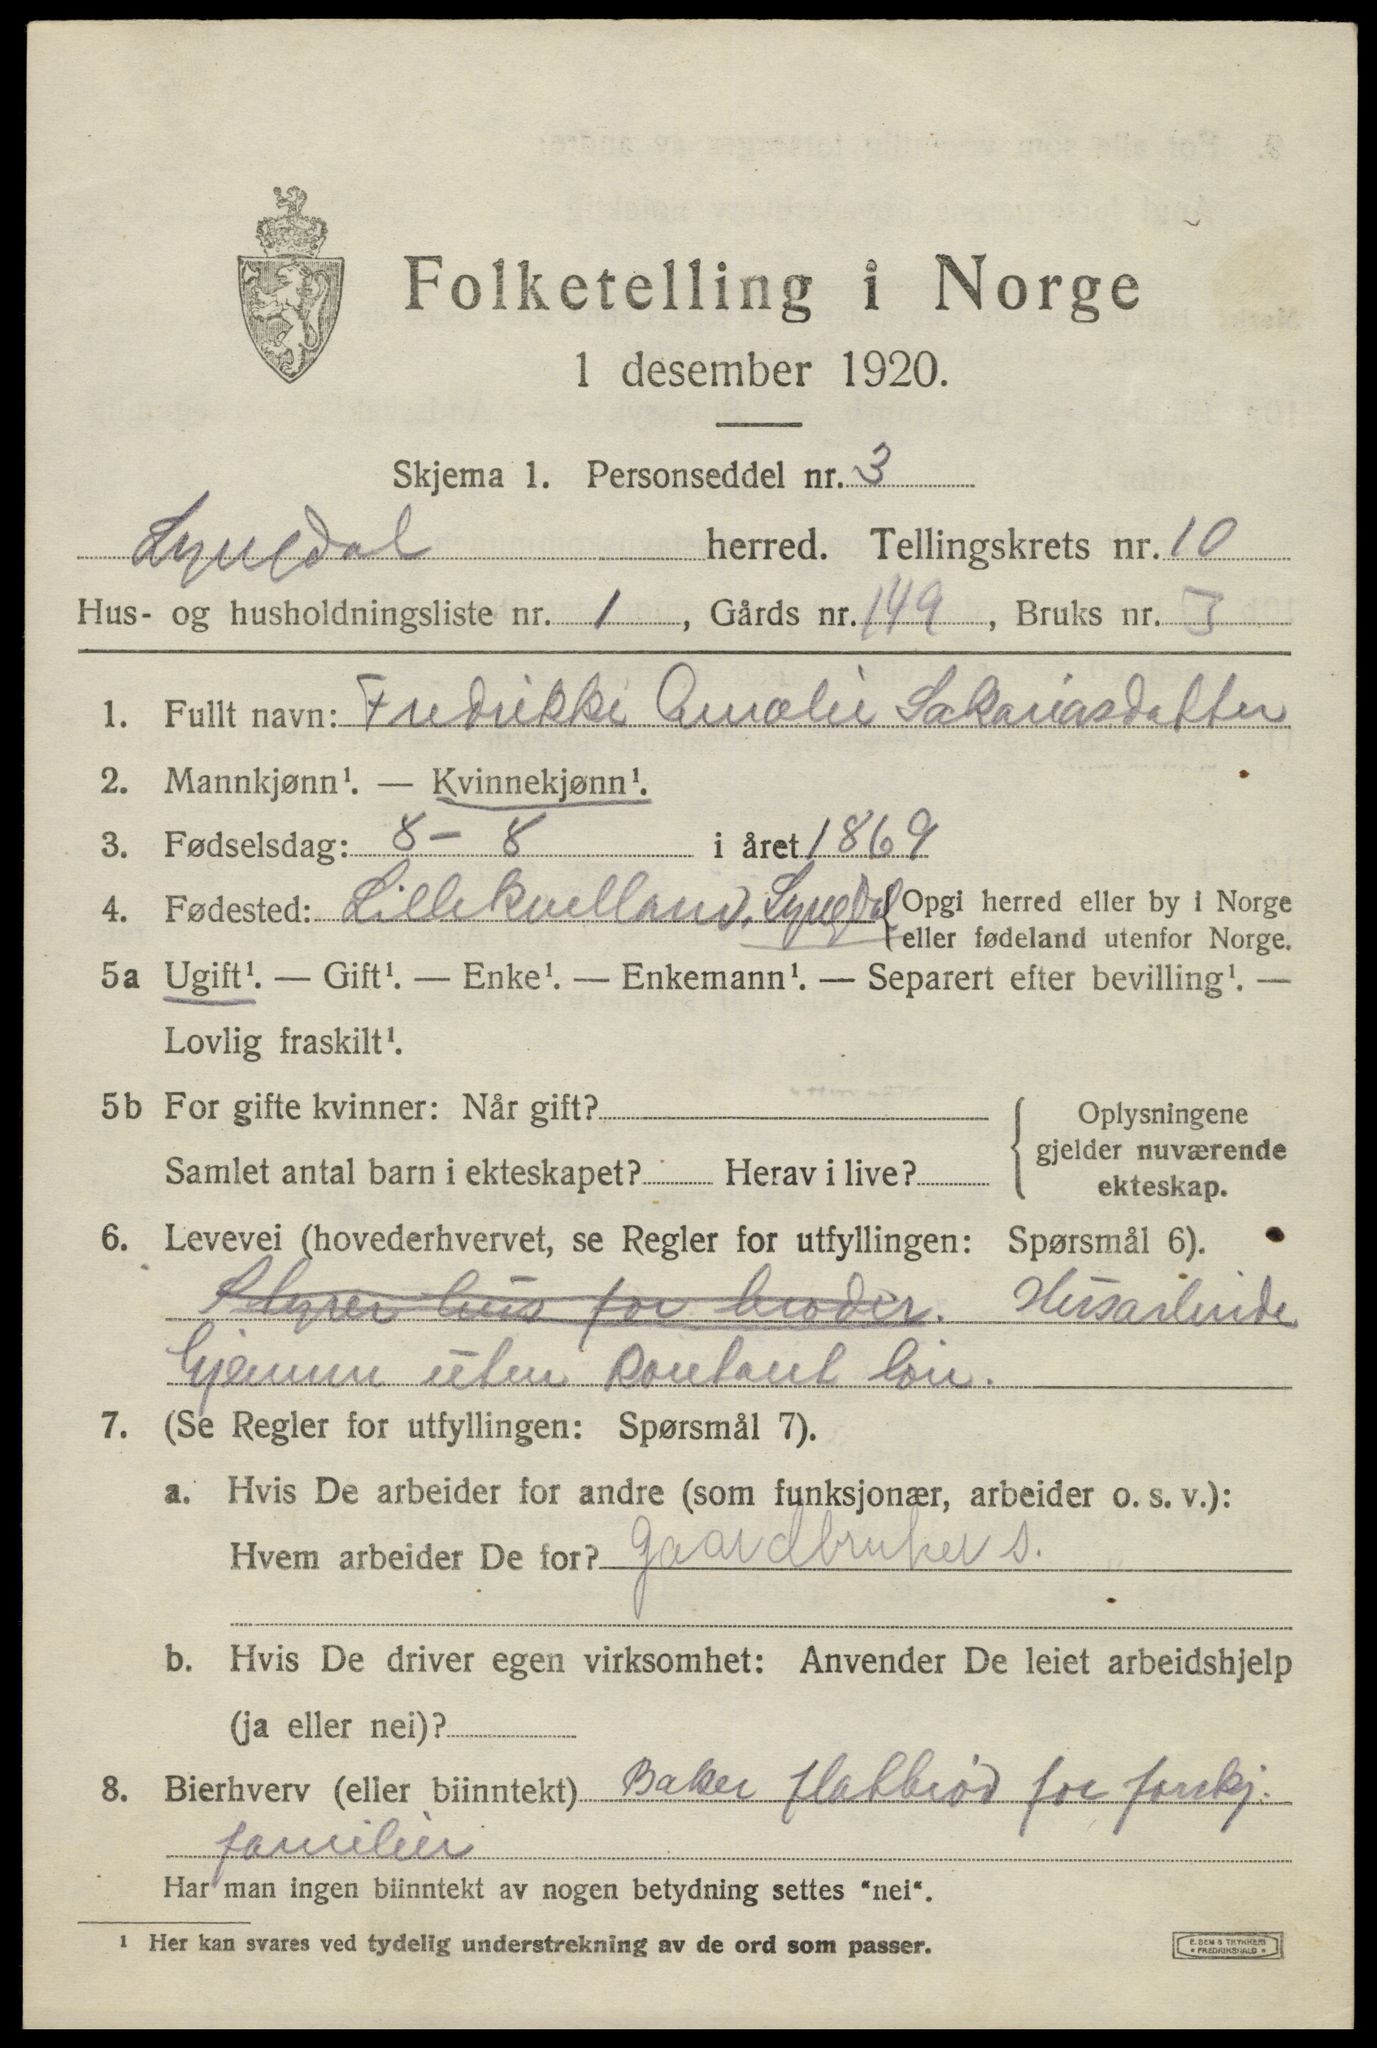 Folketelling i Norge
1 desember 1920.
Skjema 1. Personseddel nr. 3
Lyngdal herred. Tellingskrets nr. 10
Hus- og husholdningsliste nr. 1, Gårds nr. 149, Bruks nr.
1. Fullt navn: Fredrikke Amalie Sakariasdatter
2. Mannkjønn¹. — Kvinnekjønn¹.
3. Fødselsdag: 8 - 8 i året 1869
4. Fødested: Lillekvelland, Lyngdal { Opgi herred eller by i Norge
eller fødeland utenfor Norge.
5a Ugift¹. — Gift¹. — Enke¹. — Enkemann¹. — Separert efter bevilling¹. —
Lovlig fraskilt¹.
5b For gifte kvinner: Når gift? { Oplysningene
gjelder nuværende
ekteskap.
Samlet antal barn i ekteskapet? Herav i live?
6. Levevei (hovederhvervet, se Regler for utfyllingen: Spørsmål 6).
Styrer hus for broder. Husarbeide
hjemme uten kontant løn.
7. (Se Regler for utfyllingen: Spørsmål 7).
a. Hvis De arbeider for andre (som funksjonær, arbeider o. s. v.):
Hvem arbeider De for? Gaardbruker s.
b. Hvis De driver egen virksomhet: Anvender De leiet arbeidshjelp
(ja eller nei)?
8. Bierhverv (eller biinntekt) Baker flatbrød for forskj.
familier
Har man ingen biinntekt av nogen betydning settes "nei".
¹ Her kan svares ved tydelig understrekning av de ord som passer.
E. SEM'S TRYKKERI
FREDRIKSHALD